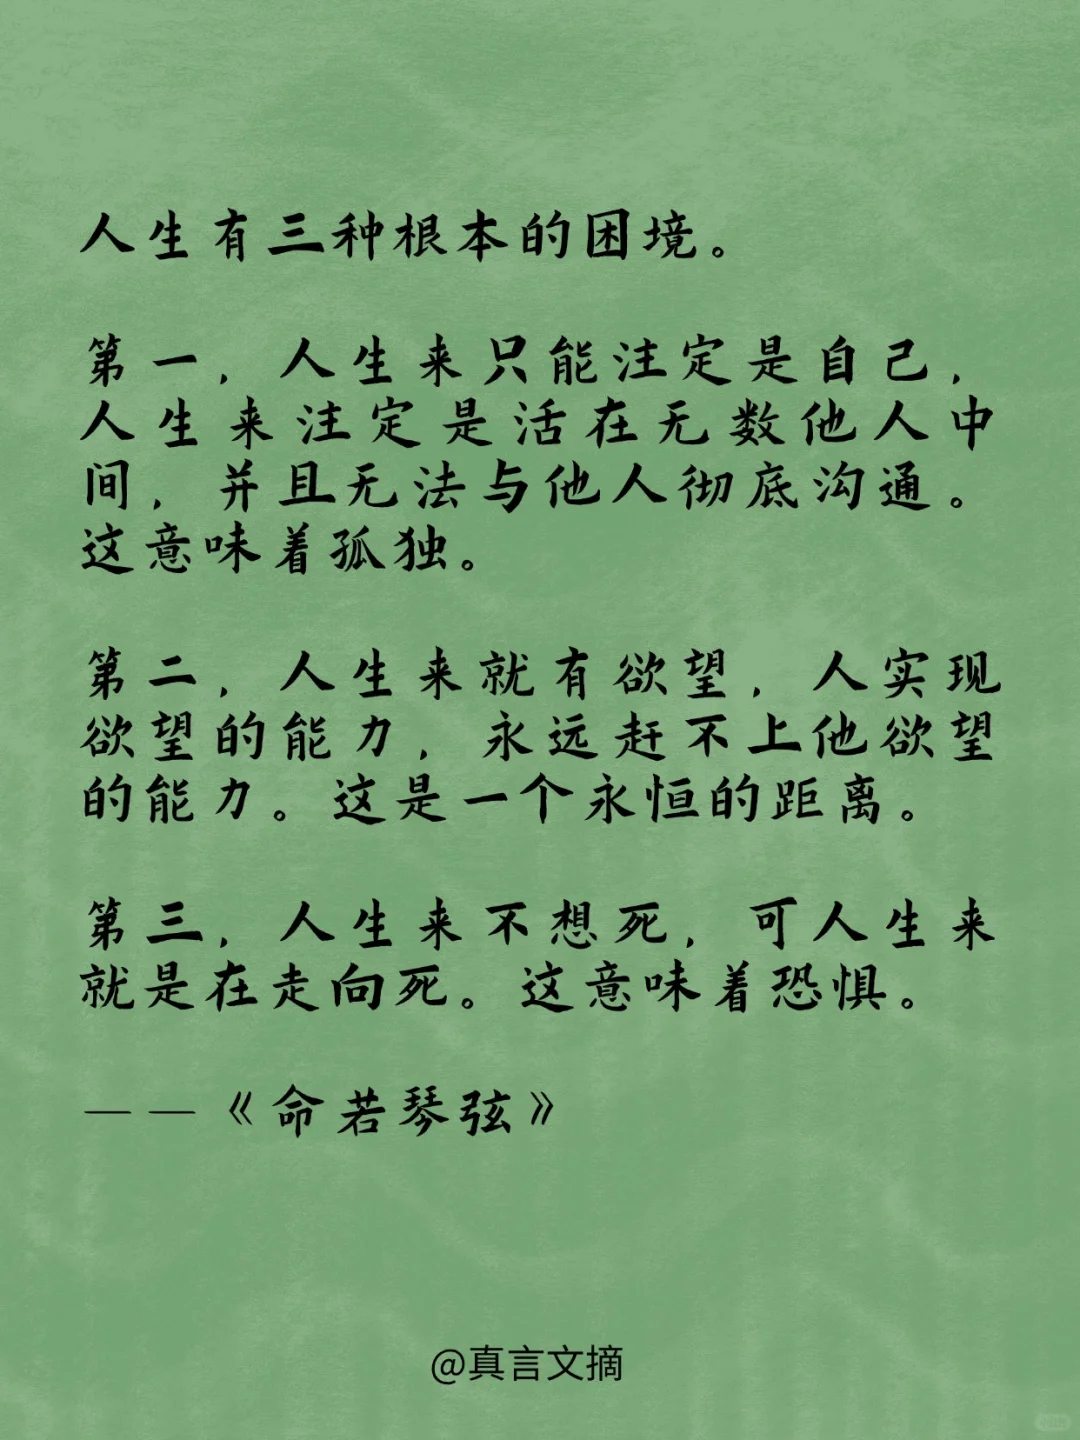 人生有三种根本的困境。
第一，人生来只能注定是自己，
人生来注定是活在无数他人中
间，并且无法与他人彻底沟通。
这意味着孤独。
第二，人生来就有欲望，人实现
欲望的能力，永远赶不上他欲望
的能力。这是一个永恒的距离。
第三，人生来不想死，可人生来
就是在走向死。这意味着恐惧。
——《命若琴弦》
@真言文摘